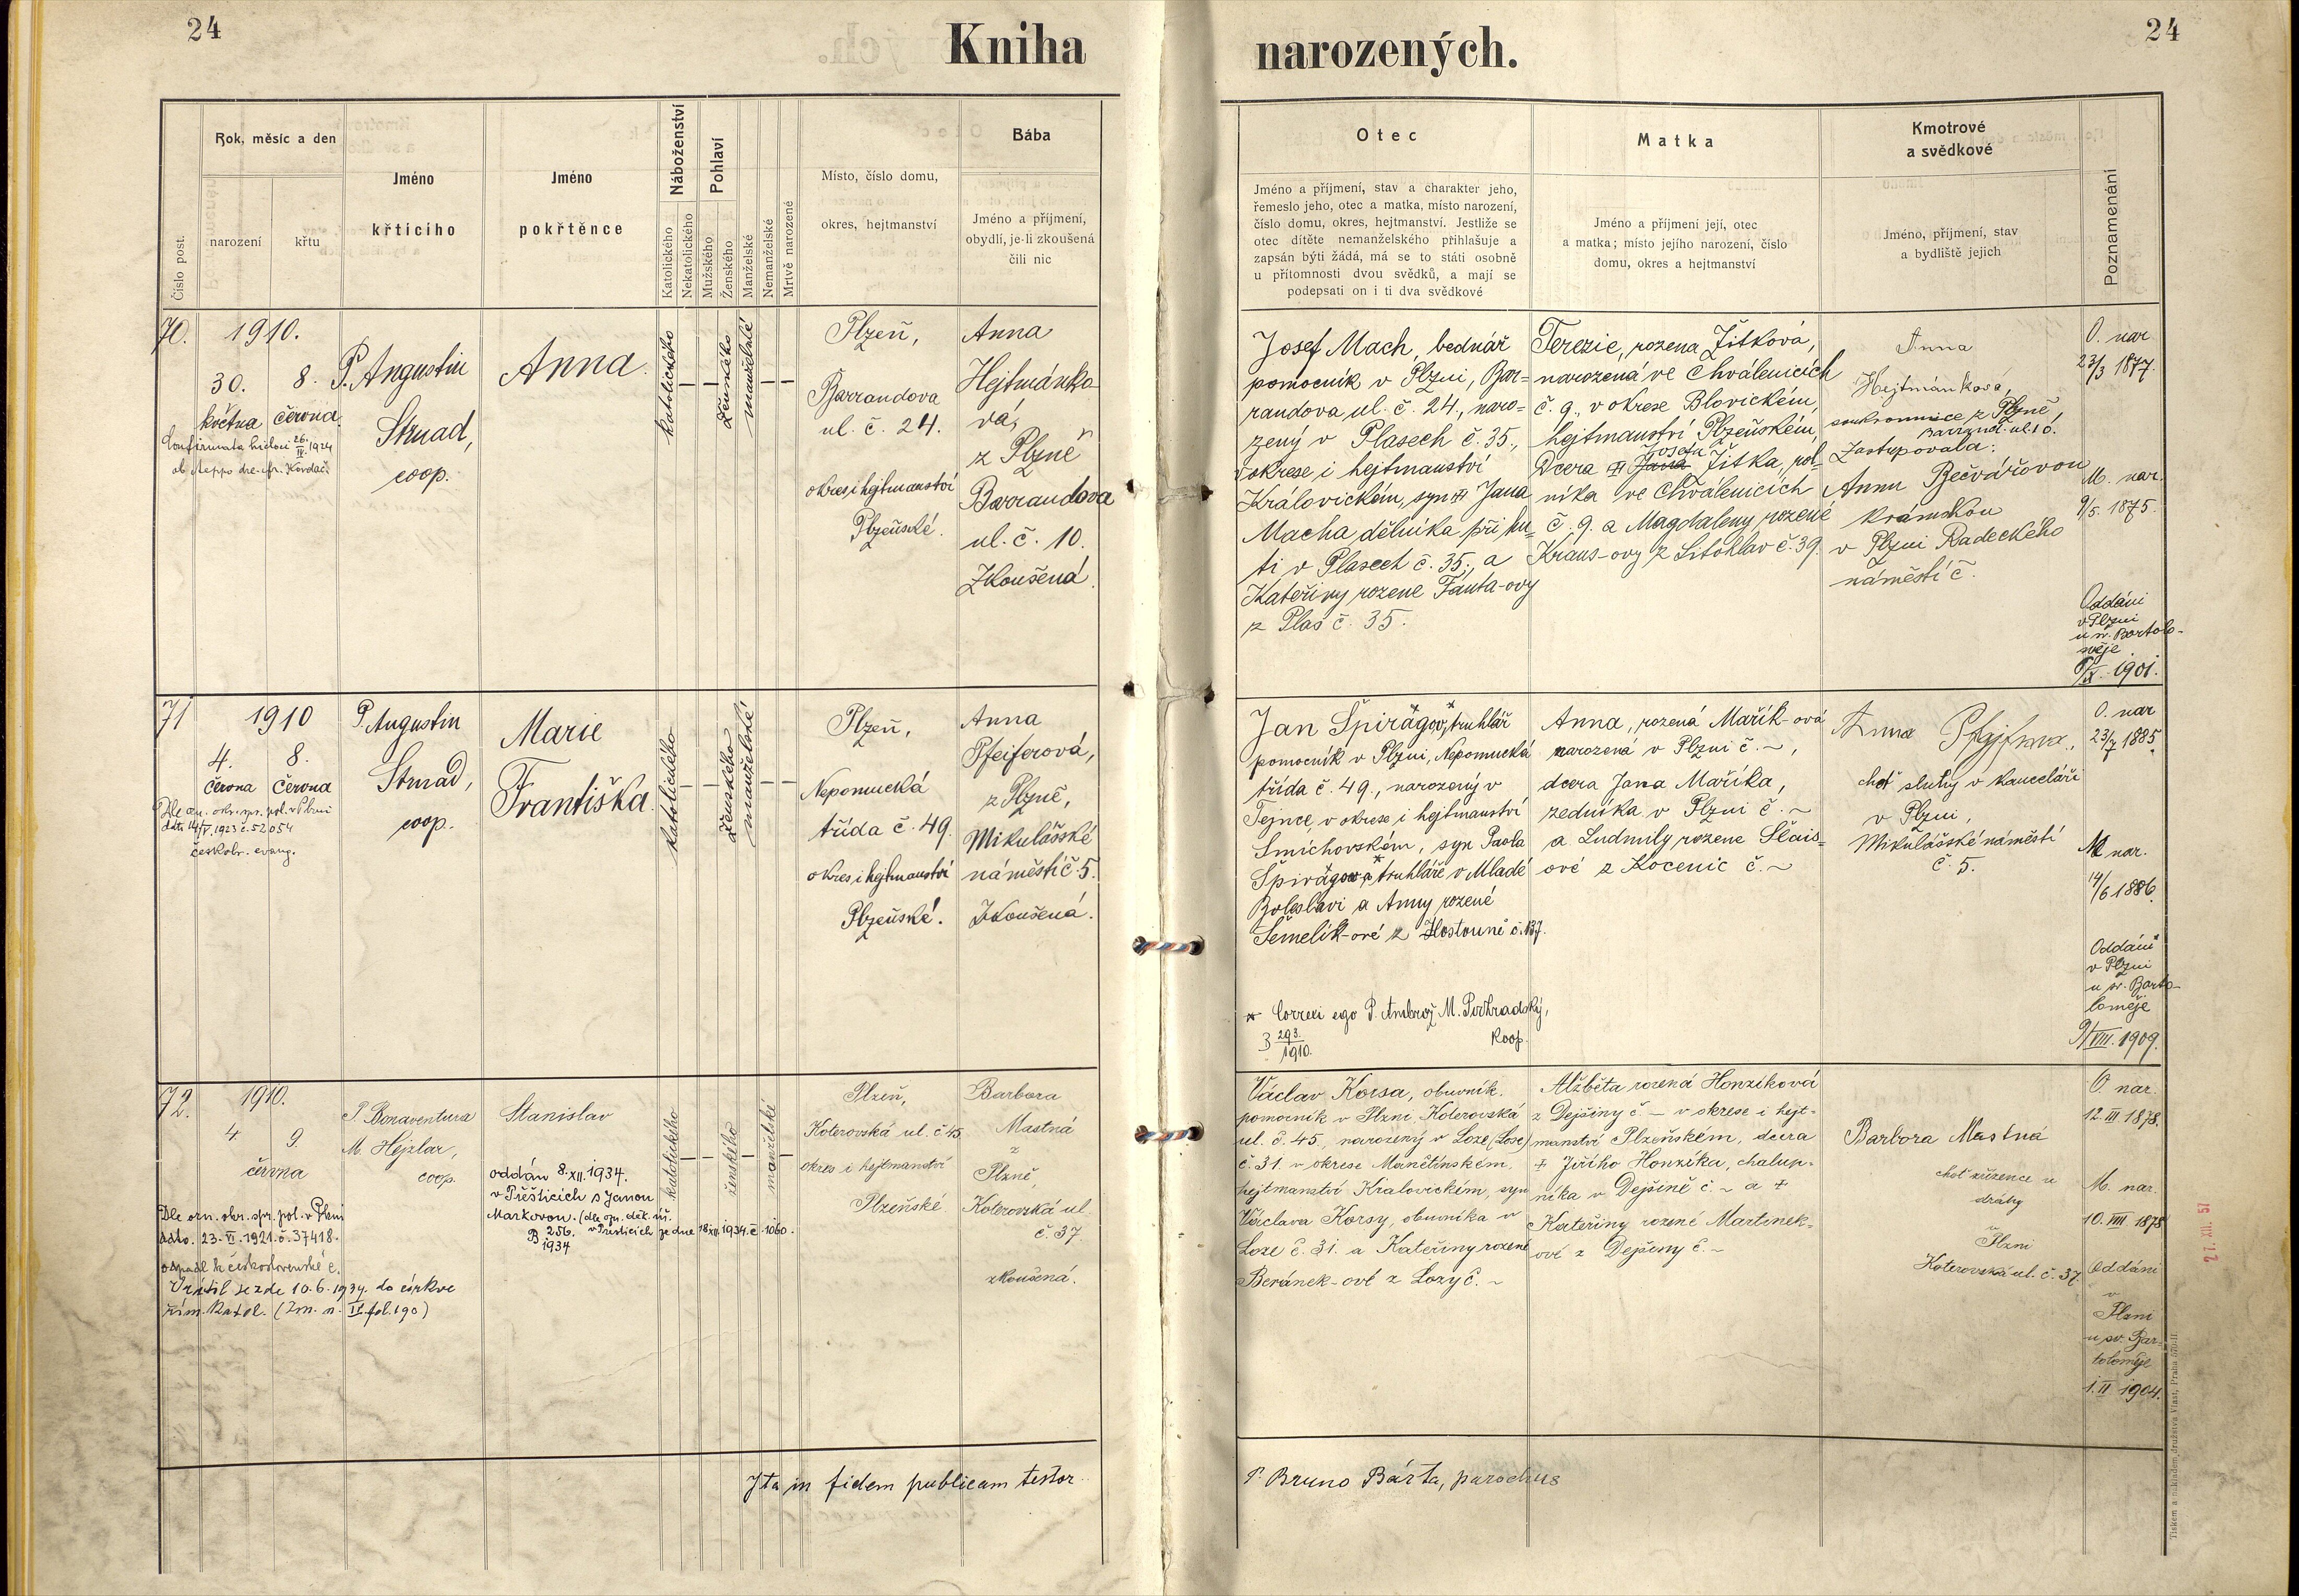 24
Kniha
narozených.
24
Číslo post.
Rok, měsíc a den
narození
křtu
Jméno
křticího
Jméno
pokřtěnce
Náboženství
Katolického
Nekatolického
Pohlaví
Mužského
Ženského
Manželské
Nemanželské
Mrtvě narozené
Místo, číslo domu,
okres, hejtmanství
Bába
Jméno a příjmení,
obydlí, je-li zkoušená
čili nic
Otec
Jméno a příjmení, stav a charakter jeho,
řemeslo jeho, otec a matka, místo narození,
číslo domu, okres, hejtmanství. Jestliže se
otec dítěte nemanželského přihlašuje a
zapsán býti žádá, má se to státi osobně
u přítomnosti dvou svědků, a mají se
podepsati on i ti dva svědkové
Matka
Jméno a příjmení její, otec
a matka; místo jejího narození, číslo
domu, okres a hejtmanství
Kmotrové
a svědkové
Jméno, příjmení, stav
a bydliště jejich
Poznamenání
70.
1910.
30. 8.
května června
Confirmata hic loci 26. IV. 1924
P. Augustin
Strnad,
coop.
Anna
katolického
ženského
manželské
Plzeň,
Barrandova
ul. č. 24.
okres i hejtmanství
Plzeňské.
Anna
Hejtmánko-
vá,
z Plzně
Barrandova
ul. č. 10.
Zkoušená.
Josef Mach, bednář
pomocník v Plzni, Bar-
randova ul. č. 24., naro-
zený v Plasech č. 35.,
v okrese i hejtmanství
Královickém, syn Jana
Macha dělníka při hu-
ti v Plasech č. 35., a
Kateřiny rozené Fanta-ovy
z Plas č. 35.
Terezie, rozená Žitková,
narozená ve Chválenicích
č. 9., v okrese Blovickém,
hejtmanství Plzeňském,
Josefa
dcera Jana Žitka, rol-
níka ve Chválenicích
č. 9. a Magdaleny rozené
Kraus-ovy z Litohlav č. 39.
Anna
Hejtmánková,
soukromnice z Plzně,
Barrand. ul. 10.
Zastupovala:
Annu Bečvářovou
krámskou
v Plzni Radeckého
náměstí č.
O. nar
23/3 1877.
M. nar.
9/5. 1875.
Oddáni
v Plzni
u sv. Bartolo-
měje
/IX. 1901.
71
1910
4. 8.
června června
Dle ozn. okr. spr. pol. v Plzni
dato 14/V. 1923 č. 52054
českobr. evang.
P. Augustin
Strnad,
coop.
Marie
Františka.
katolického
ženského
manželské
Plzeň,
Nepomucká
třída č. 49.
okres i hejtmanství
Plzeňské.
Anna
Pfeiferová,
z Plzně,
Mikulášské
náměstí č. 5.
Zkoušená.
Jan Špirágov, truhlář
pomocník v Plzni, Nepomucká
třída č. 49., narozený v
Tejnce, v okrese i hejtmanství
Smíchovském, syn Pavla
Špirágova truhláře v Mladé
Boleslavi a Anny rozené
Šemelík-ové z Hostouně č. 137.
* Correxi ego P. Ambrož M. Podhradský,
koop.
3 293./1910.
Anna, rozená Mařík-ová
narozená v Plzni č. ~,
dcera Jana Maříka,
zedníka v Plzni č. ~
a Ludmily rozené Šlais-
ové z Kocenic č. ~
choť sluhy v kanceláři
v Plzni,
Mikulášské náměstí
č. 5.
O. nar
23/7 1885.
M. nar.
14/6 1886.
Oddáni
v Plzni
u sv. Barto-
loměje
9/VIII. 1909.
72.
1910.
4. 9.
června
Dle ozn. okr. spr. pol. v Plzni
ddto. 23. VI. 1921. č. 37418.
odpadl k československé c.
Vrátil se zde 10. 6. 1934. do církve
řím. katol. (Zm. n. II. fol. 190)
P. Bonaventura
M. Hejzlar,
coop.
Stanislav
oddán 8. XII. 1934.
v Přešticích s Janou
Markovou. (dle ozn. děk. úř.
v Přešticích ze dne 18. XII. 1934. č. 1060.
B 256./1934
katolického
ženského
manželské
Plzeň,
Koterovská ul. č. 45.
okres i hejtmanství
Plzeňské
Barbora
Mastná
z
Plzně,
Koterovská ul.
č. 37.
zkoušená.
Václav Korsa, obuvník.
pomocník v Plzni, Koterovská
ul. č. 45, narozený v Loze (Lose)
č. 31. v okrese Manětínském,
hejtmanství Kralovickém, syn
Václava Korsy, obuvníka v
Loze č. 31. a Kateřiny rozené
Beránek-ové z Lozy č. ~
Alžběta rozená Honzíková
z Dejšiny č. – v okrese i hejt-
manství Plzeňském, dcera
+ Jiřího Honzíka, chalup-
níka v Dejšině č. ~ a +
Kateřiny rozené Martínek-
ové z Dejšeny č. ~
Barbora Mastná
choť zřízence u
dráhy
v
Plzni
Koterovská ul. č. 37.
O nar.
12. III 1878.
M. nar.
10. VIII 1878
Oddáni
v
Plzni
u sv. Bar-
toloměje
1. II 1904.
27. XII. 57
Ita in fidem publicam testor
P. Bruno Bárta, parochus
Tiskem a nákladem družstva Vlast, Praha 570-II